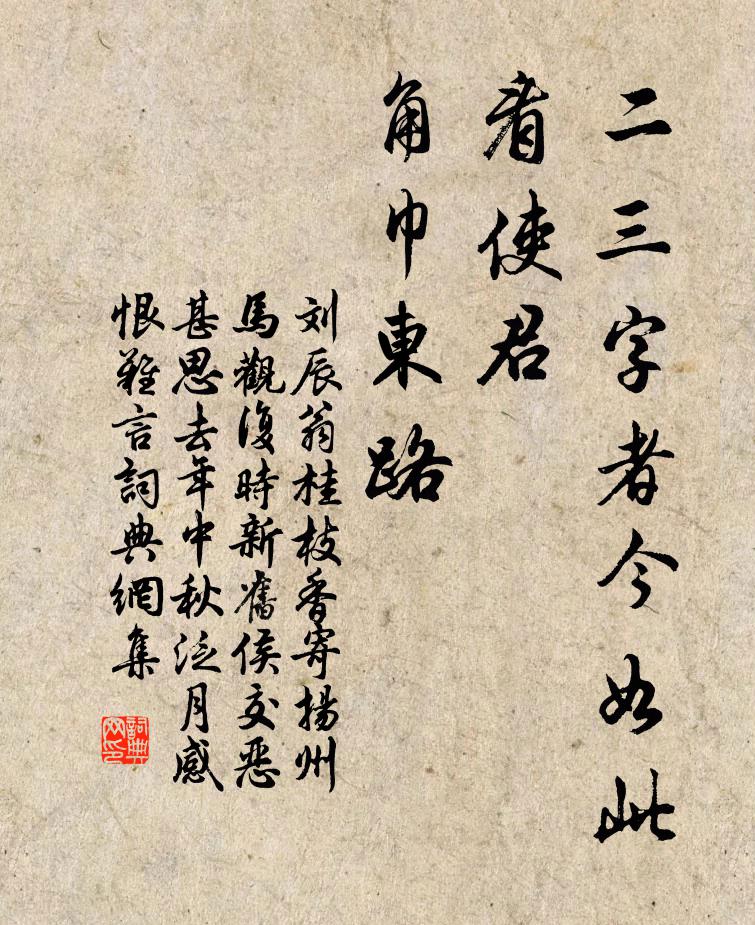 二三字者今如此
看使君
角巾東路
刘辰翁桂枝香寄揚州
馬觀復時新舊侯交惡
甚思去年中秋泛月感
恨難言詞典網集
詞典
网印